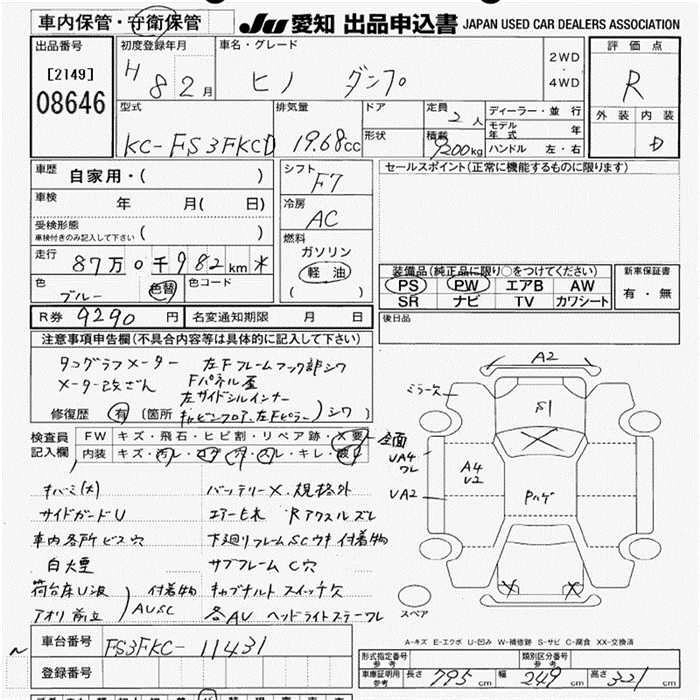 車内保管・守衛保管
JU 愛知 出品申込書 JAPAN USED CAR DEALERS ASSOCIATION
出品番号
[2149]
08646
初度登録年月
H 8 2月
車名・グレード
ヒノ ダンプ
2WD
・
4WD
評価点
R
外装 内装
D
型式
KC-FS3FKCD
排気量
19.68cc
ドア
形状
定員 2人
積載 9200kg
ディーラー・並行
モデル年式 年
ハンドル 左・右
車歴
自家用・( )
車検
年 月( 日)
受検形態
車検付きのみ記入して下さい ( )
走行
87万0千982km *
色
ブルー
色替
色コード
シフト
F7
冷房
AC
燃料
ガソリン
軽油
( )
セールスポイント(正常に機能するものに限ります)
装備品(純正品に限り○をつけてください)
PS PW エアB AW
SR ナビ TV カワシート
新車保証書
有・無
R券 9290円
名変通知期限 月 日
後日品
注意事項申告欄(不具合内容等は具体的に記入して下さい)
タコグラフメーター 左Fフレームフック部シワ
メーター改ざん Fパネル歪
左サイドシルインナー
修復歴 有 (箇所 キャビンフロア、左Fピラー)シワ )
検査員記入欄
FW キズ・飛石・ヒビ割・リペア跡・X要
内装 キズ・汚レ・コゲ・穴・スレ・キレ・
全面
キバミ(大) バッテリーX・規格外
サイドガードU エアーモレ Rアクスルズレ
車内各所ビス穴 下廻リフレームSCサキ付着物
サブフレームC穴
荷台床U波 付着物 キャブチルトスイッチ欠
アオリ前立 AUSC 各AU ヘッドライトステーワレ
A2
ミラー欠
S1
UA4
ワレ
A4
U2
UA2
Pハゲ
スペア
A-キズ E-エクボ U-凹み W-補修跡 S-サビ C-腐食 XX-交換済
車台番号
FS3FKC-11431
登録番号
型式指定番号
参考
類別区分番号
参考
車検証明用
参考
長さ 795cm 幅 249cm 高さ 321cm